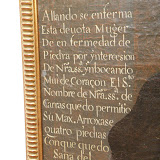 Allando se enferma
Esta devota Muger
De en fermedad de
Piedra por ynteresion
De Nra. ss. ynbocando
Mui de Coraçon El S.
Nombre de Nra. ss. de
Caras quedo permitio
Su Max. Arroxase
quatro piedras
Con que quedo
Sana de